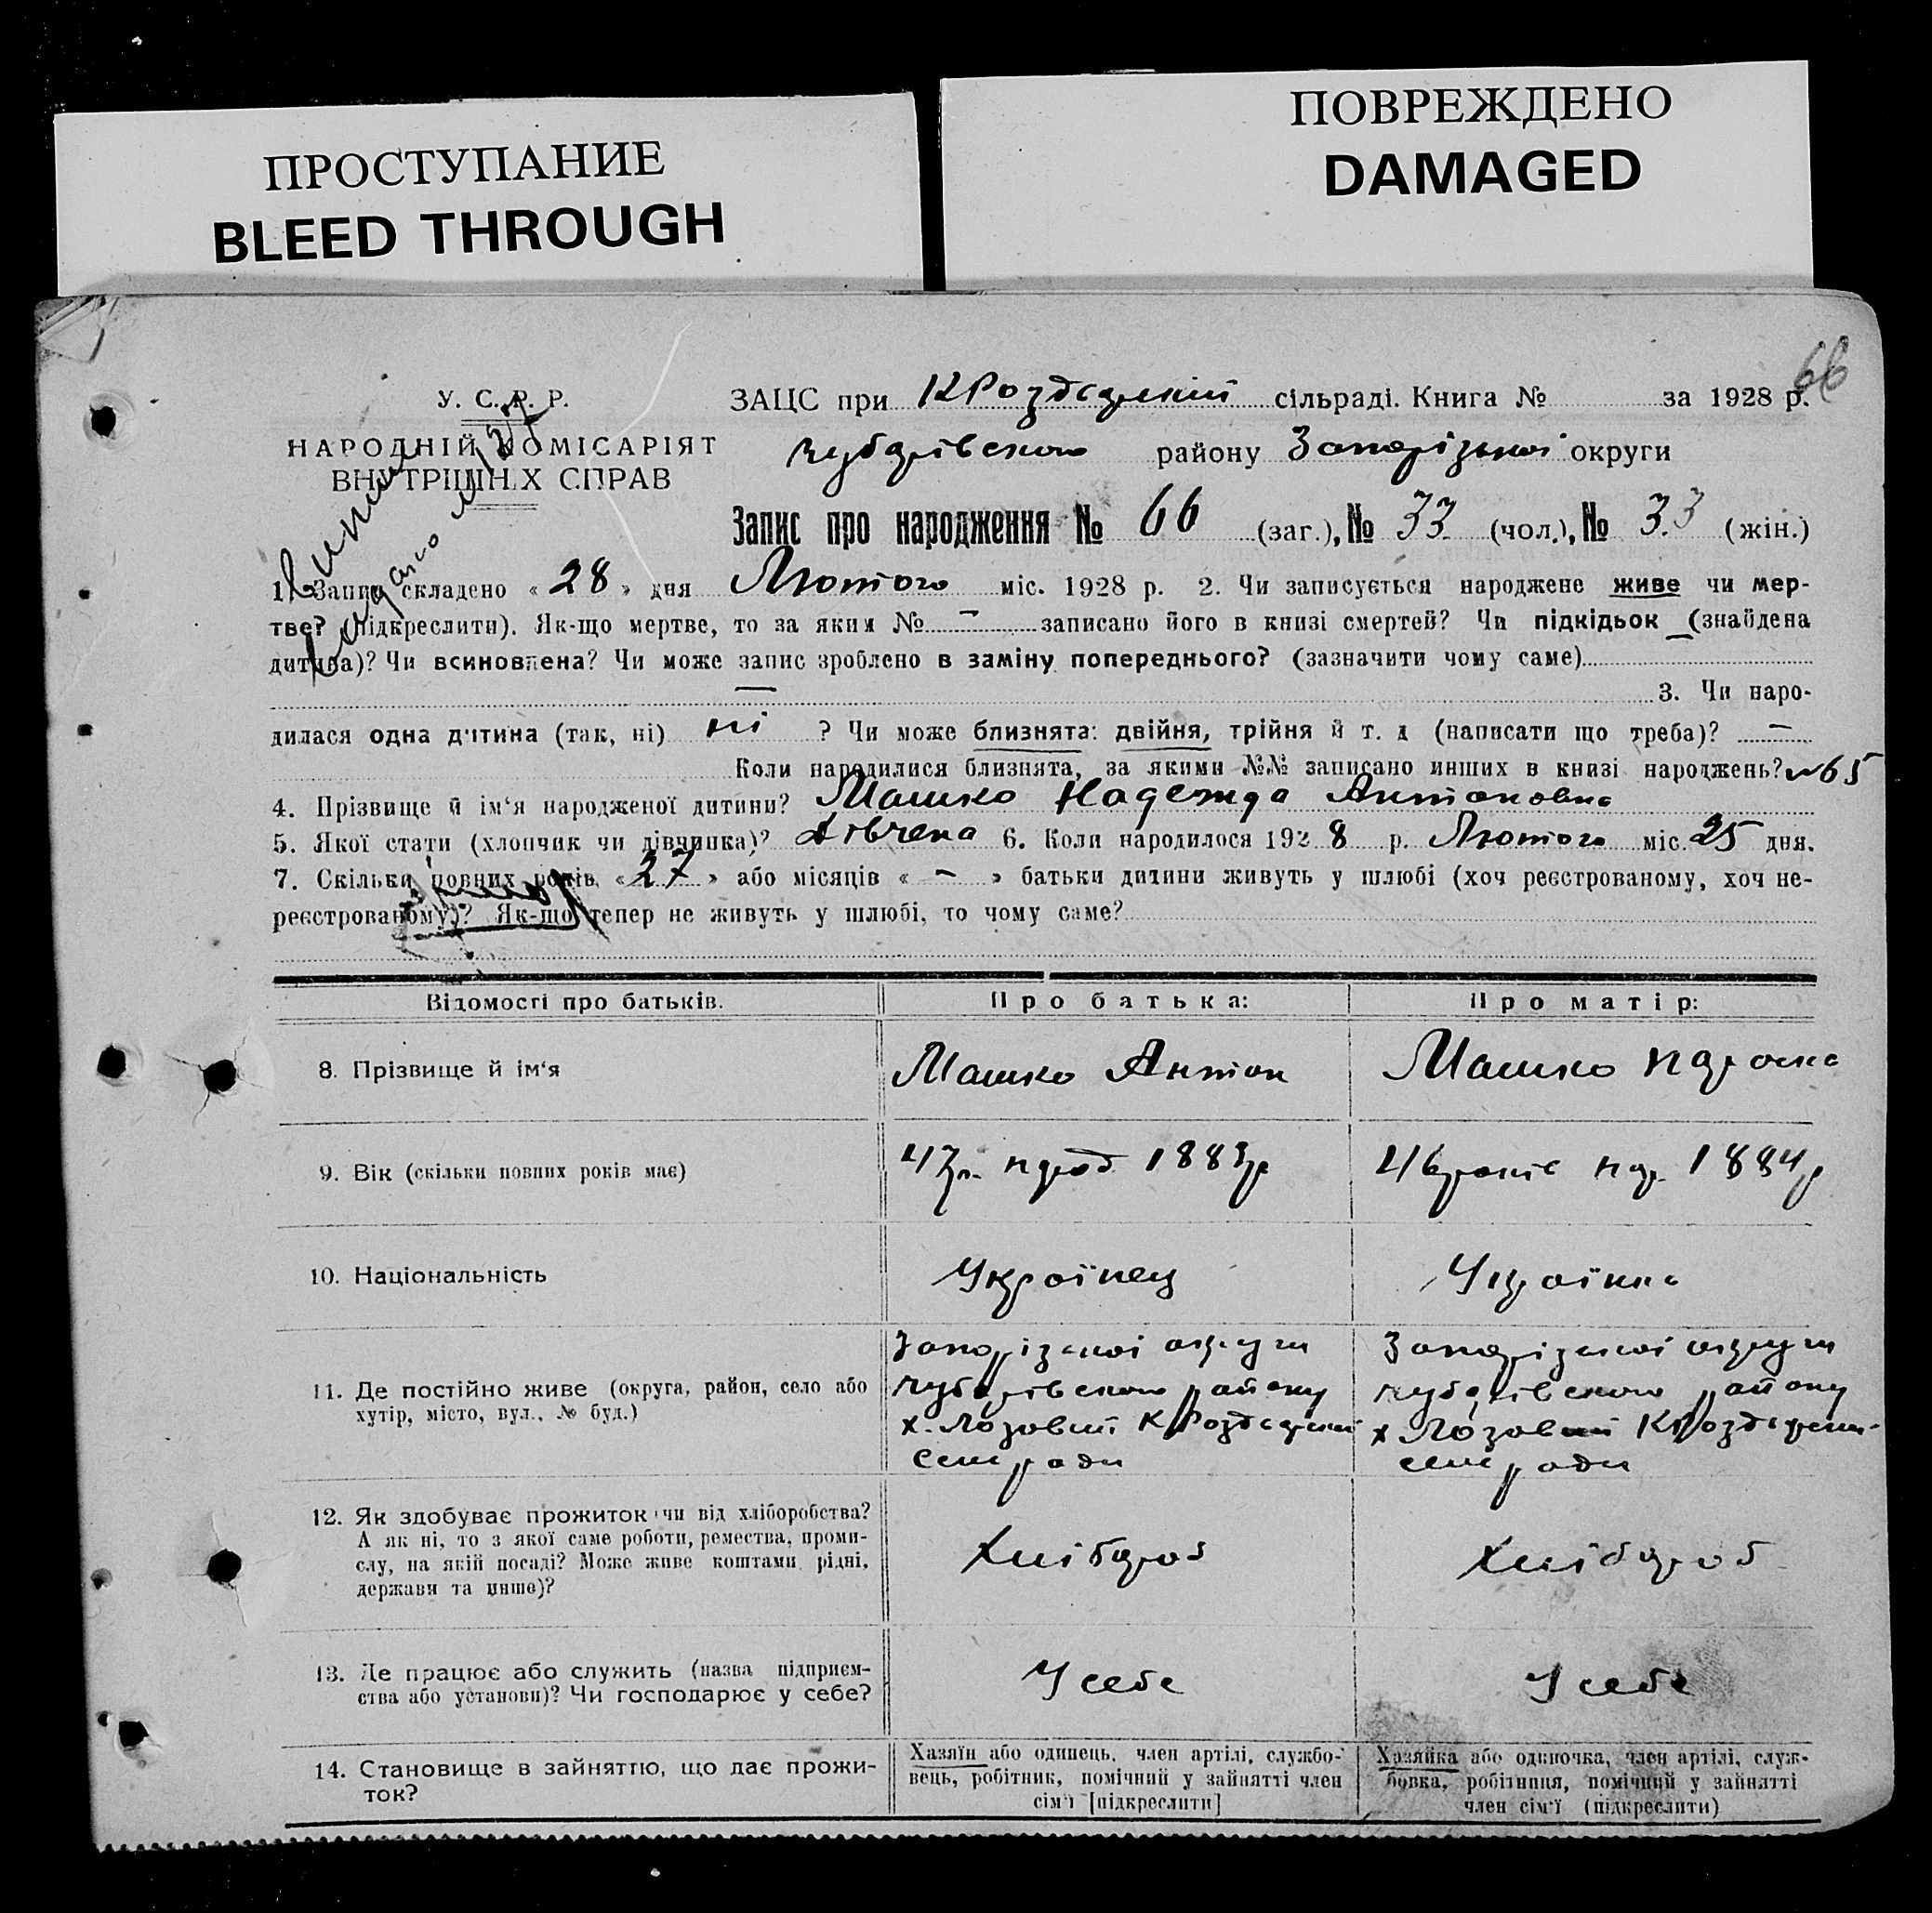 ПРОСТУПАНИЕ
BLEED THROUGH
ПОВРЕЖДЕНО
DAMAGED
66
У. С. Р. Р.
НАРОДНІЙ КОМІСАРІЯТ
ВНУТРІШНІХ СПРАВ
ЗАЦС при КРоздорській сільраді. Книга № за 1928 р.
Чубарівського району Запорізької округи
Запис про народження № 66 (заг.), № 33 (чол.), № 33 (жін.)
1. Запис складено « 28 » дня Лютого міс. 1928 р. 2. Чи записується народжене живе чи мер-
тве? (підкреслити). Як-що мертве, то за яким № — записано його в книзі смертей? Чи підкідьок (знайдена
дитина)? Чи всиновлена? Чи може запис зроблено в заміну попереднього? (зазначити чому саме)
— 3. Чи наро-
дилася одна дитина (так, ні) ні ? Чи може близнята: двійня, трійня й т. д (написати що треба)? —
Коли народилися близнята, за якими №№ записано инших в книзі народжень? №65
4. Прізвище й ім‘я народженої дитини? Машко Надежда Антоновна
5. Якої стати (хлопчик чи дівчинка)? Дівчена 6. Коли народилося 1928 р. Лютого міс. 25 дня.
7. Скільки повних років « 27 » або місяців « — » батьки дитини живуть у шлюбі (хоч реєстрованому, хоч не-
реєстрованому)? Як-що тепер не живуть у шлюбі, то чому саме?
Відомості про батьків. Про батька: Про матір:
8. Прізвище й ім‘я Машко Антон Машко
9. Вік (скільки повних років має) 47р. 1883р 46років 1884р
10. Національність Українец Українка
11. Де постійно живе (округа, район, село або
хутір, місто, вул., № буд.)
Запорізької округи
Чубарівського району
х. Лозовий КРоздорській
сельради
Запорізької округи
Чубарівського району
х Лозовий КРоздорськ-
сельради
12. Як здобуває прожиток чи від хліборобства?
А як ні, то з якої саме роботи, ремества, проми-
слу, на якій посаді? Може живе коштами рідні,
держави та инше)?
Хлібороб Хлібороб
13. Де працює або служить (назва підприєм-
ства або установи)? Чи господарює у себе?
У себе У себе
14. Становище в зайняттю, що дає прожи-
ток?
Хазяїн або одинець, член артілі, службо-
вець, робітник, помічний у зайнятті член
сім‘ї [підкреслити]
Хазяйка або одиночка, член артілі, служ-
бовка, робітниця, помічний у зайнятті
член сім‘ї (підкреслити)